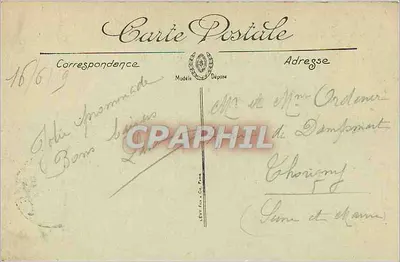 Carte Postale
Correspondance
Adresse
Modèle Déposé
16/6/9
Jolie promenade
Bons baisers
Mr et Mme
de Dampmart
CPAPHIL
Thorigny
(Seine et Marne)